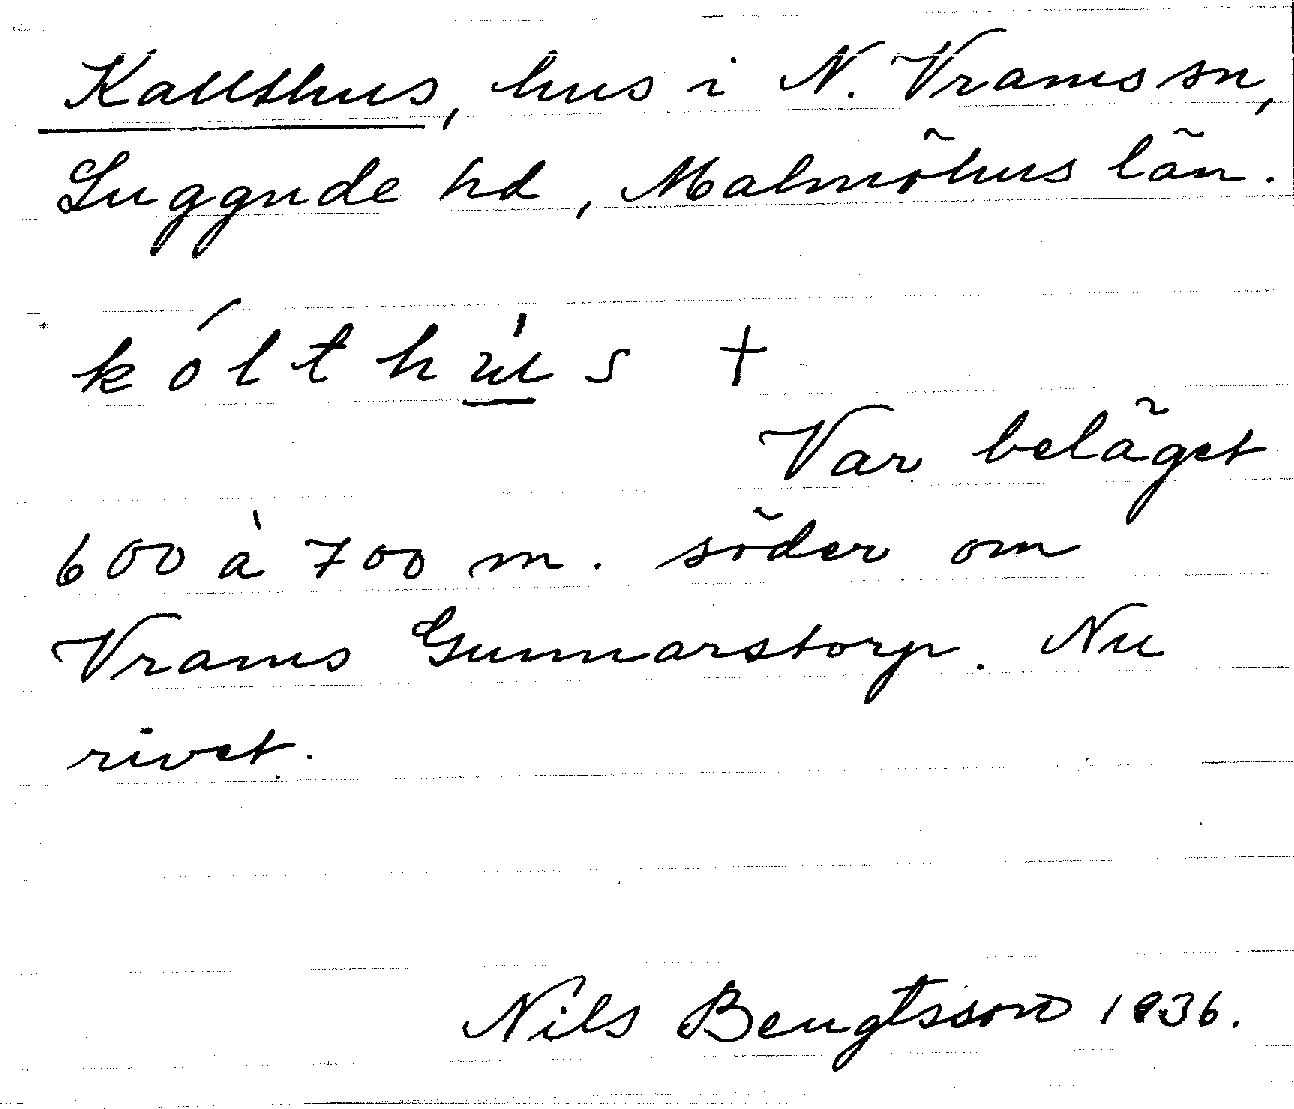 Kallthus, hus i N. Vrams sn,
Luggude hd, Malmöhus län.
kólthùs +
Var beläget
600 à 700 m. söder om
Vrams Gunnarstorp. Nu
rivet.
Nils Bengtsson 1936.